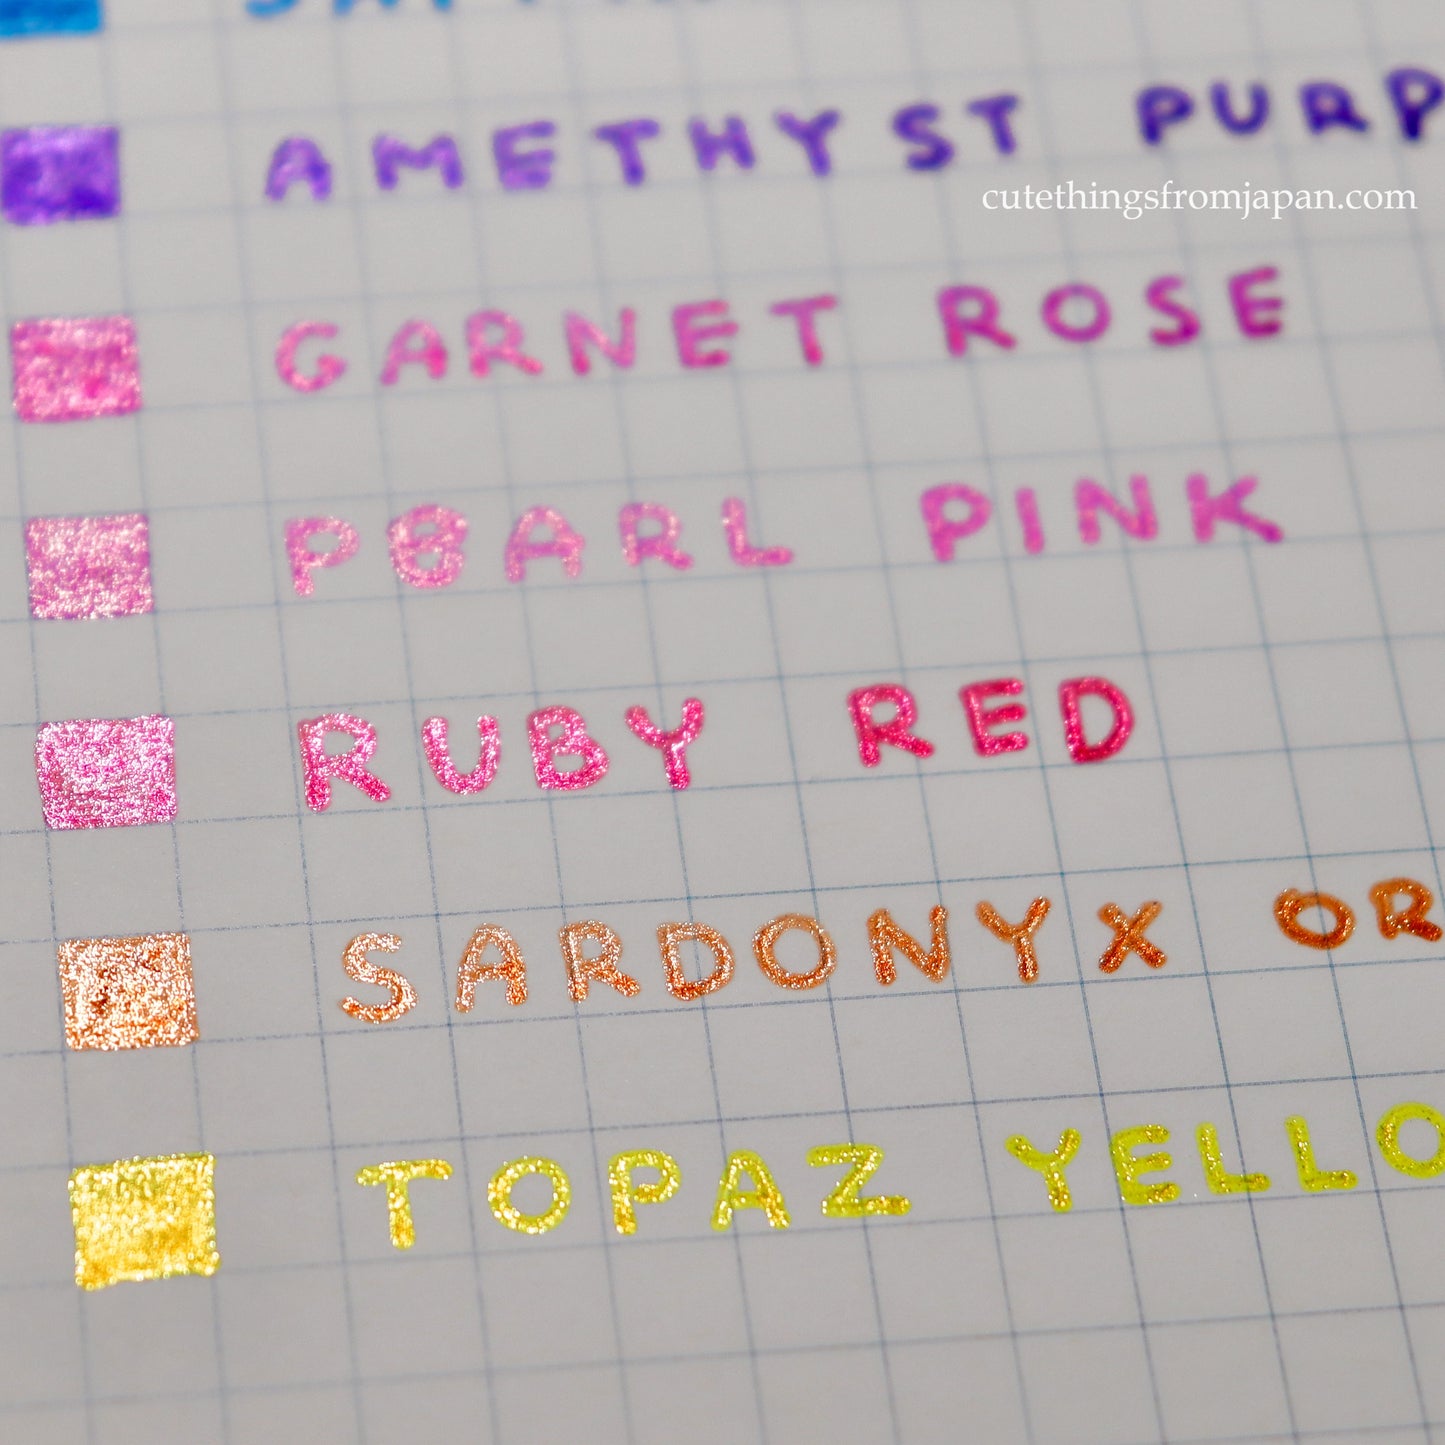 AMETHYST PURP
cutethingsfromjapan.com
GARNET ROSE
PEARL PINK
RUBY RED
SARDONYX OR
TOPAZ YELLO